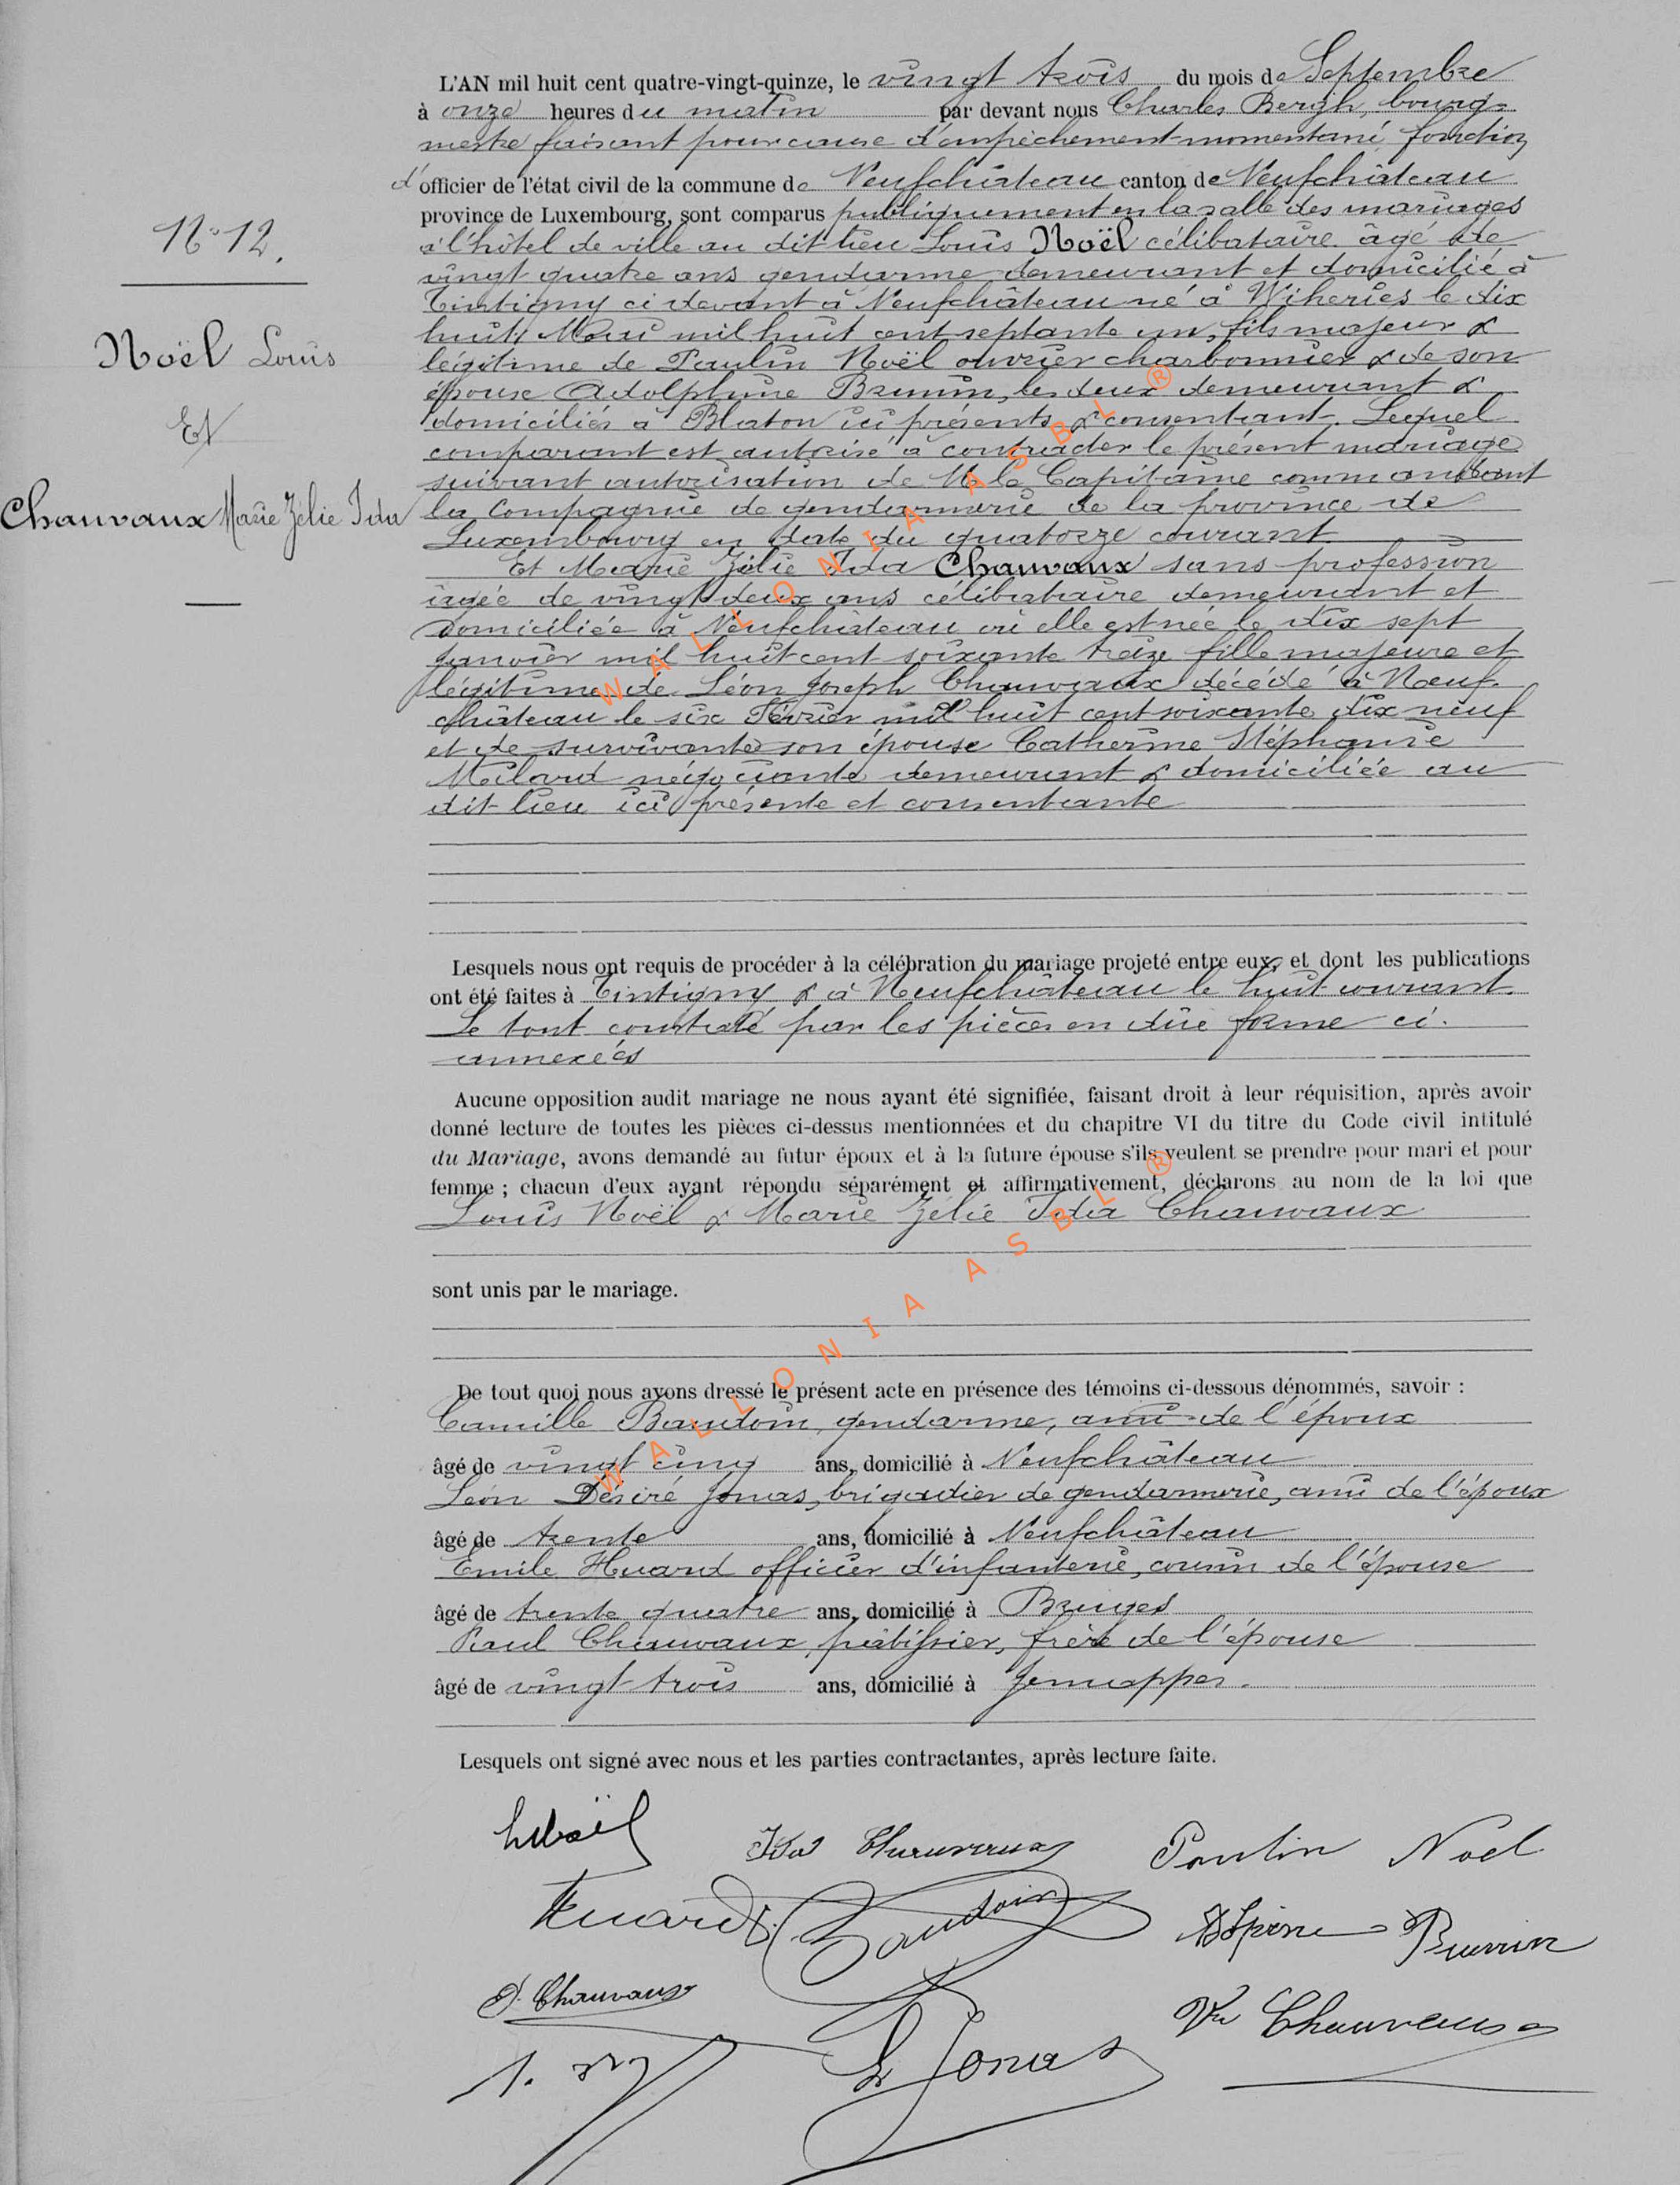 L'AN mil huit cent quatre-vingt-quinze, le vingt trois du mois de Septembre
à onze heures du matin par devant nous Charles Bergh, bourg-
mestre faisant pour cause d'empêchement momentané fonction
d'officier de l'état civil de la commune de Neufchâteau canton de Neufchâteau
province de Luxembourg, sont comparus publiquement en la salle des mariages
à l'hôtel de ville au dit lieu Louis Noël célibataire âgé de
vingt quatre ans gendarme demeurant et domicilié à
Tintigny ci devant à Neufchâteau né à Wiheries le dix
huit Mai mil huit cent septante un, fils majeur &
légitime de Paulin Noël ouvrier charbonnier & de son
épouse Adolphine Brunin, les deux demeurant &
domiciliés à Blaton ici présents & consentant. Lequel
comparant est autorisé à contracter le présent mariage
suivant autorisation de M. le Capitaine commandant
la Compagnie de gendarmerie de la province de
Luxembourg en date du quatorze courant.
Et Marie Zélie Ida Chauvaux sans profession
âgée de vingt deux ans célibataire demeurant et
domiciliée à Neufchâteau où elle est née le dix sept
Janvier mil huit cent soixante treize fille majeure et
légitime de Léon Joseph Chauvaux décédé à Neuf-
château le six Février mil huit cent soixante dix neuf
et de survivante son épouse Catherine Stéphanie
Milard négociante demeurant & domiciliée au
dit lieu ici présente et consentante
N° 12.
Noël Louis
Et
Chauvaux Marie Zélie Ida
Lesquels nous ont requis de procéder à la célébration du mariage projeté entre eux, et dont les publications
ont été faites à Tintigny & à Neufchâteau le huit courant.
Le tout constaté par les pièces en due forme ci-
annexées
Aucune opposition audit mariage ne nous ayant été signifiée, faisant droit à leur réquisition, après avoir
donné lecture de toutes les pièces ci-dessus mentionnées et du chapitre VI du titre du Code civil intitulé
du Mariage, avons demandé au futur époux et à la future épouse s'ils veulent se prendre pour mari et pour
femme ; chacun d'eux ayant répondu séparément et affirmativement, déclarons au nom de la loi que
Louis Noël & Marie Zélie Ida Chauvaux
sont unis par le mariage.
De tout quoi nous avons dressé le présent acte en présence des témoins ci-dessous dénommés, savoir :
Camille Baudoin, gendarme, ami de l'époux
âgé de vingt cinq ans, domicilié à Neufchâteau
Léon Désiré Jonas, brigadier de gendarmerie, ami de l'époux
âgé de trente ans, domicilié à Neufchâteau
Emile Huard officier d'infanterie, cousin de l'épouse
âgé de trente quatre ans, domicilié à Bruges
Paul Chauvaux, pâtissier, frère de l'épouse
âgé de vingt trois ans, domicilié à Jemappes.
Lesquels ont signé avec nous et les parties contractantes, après lecture faite.
L Noël Ida Chauvaux Paulin Noel
Huard Baudoin Brunin
P. Chauvaux Ve Chauvaux
L Jonas
WALLONIA ASBL ®
WALLONIA ASBL ®